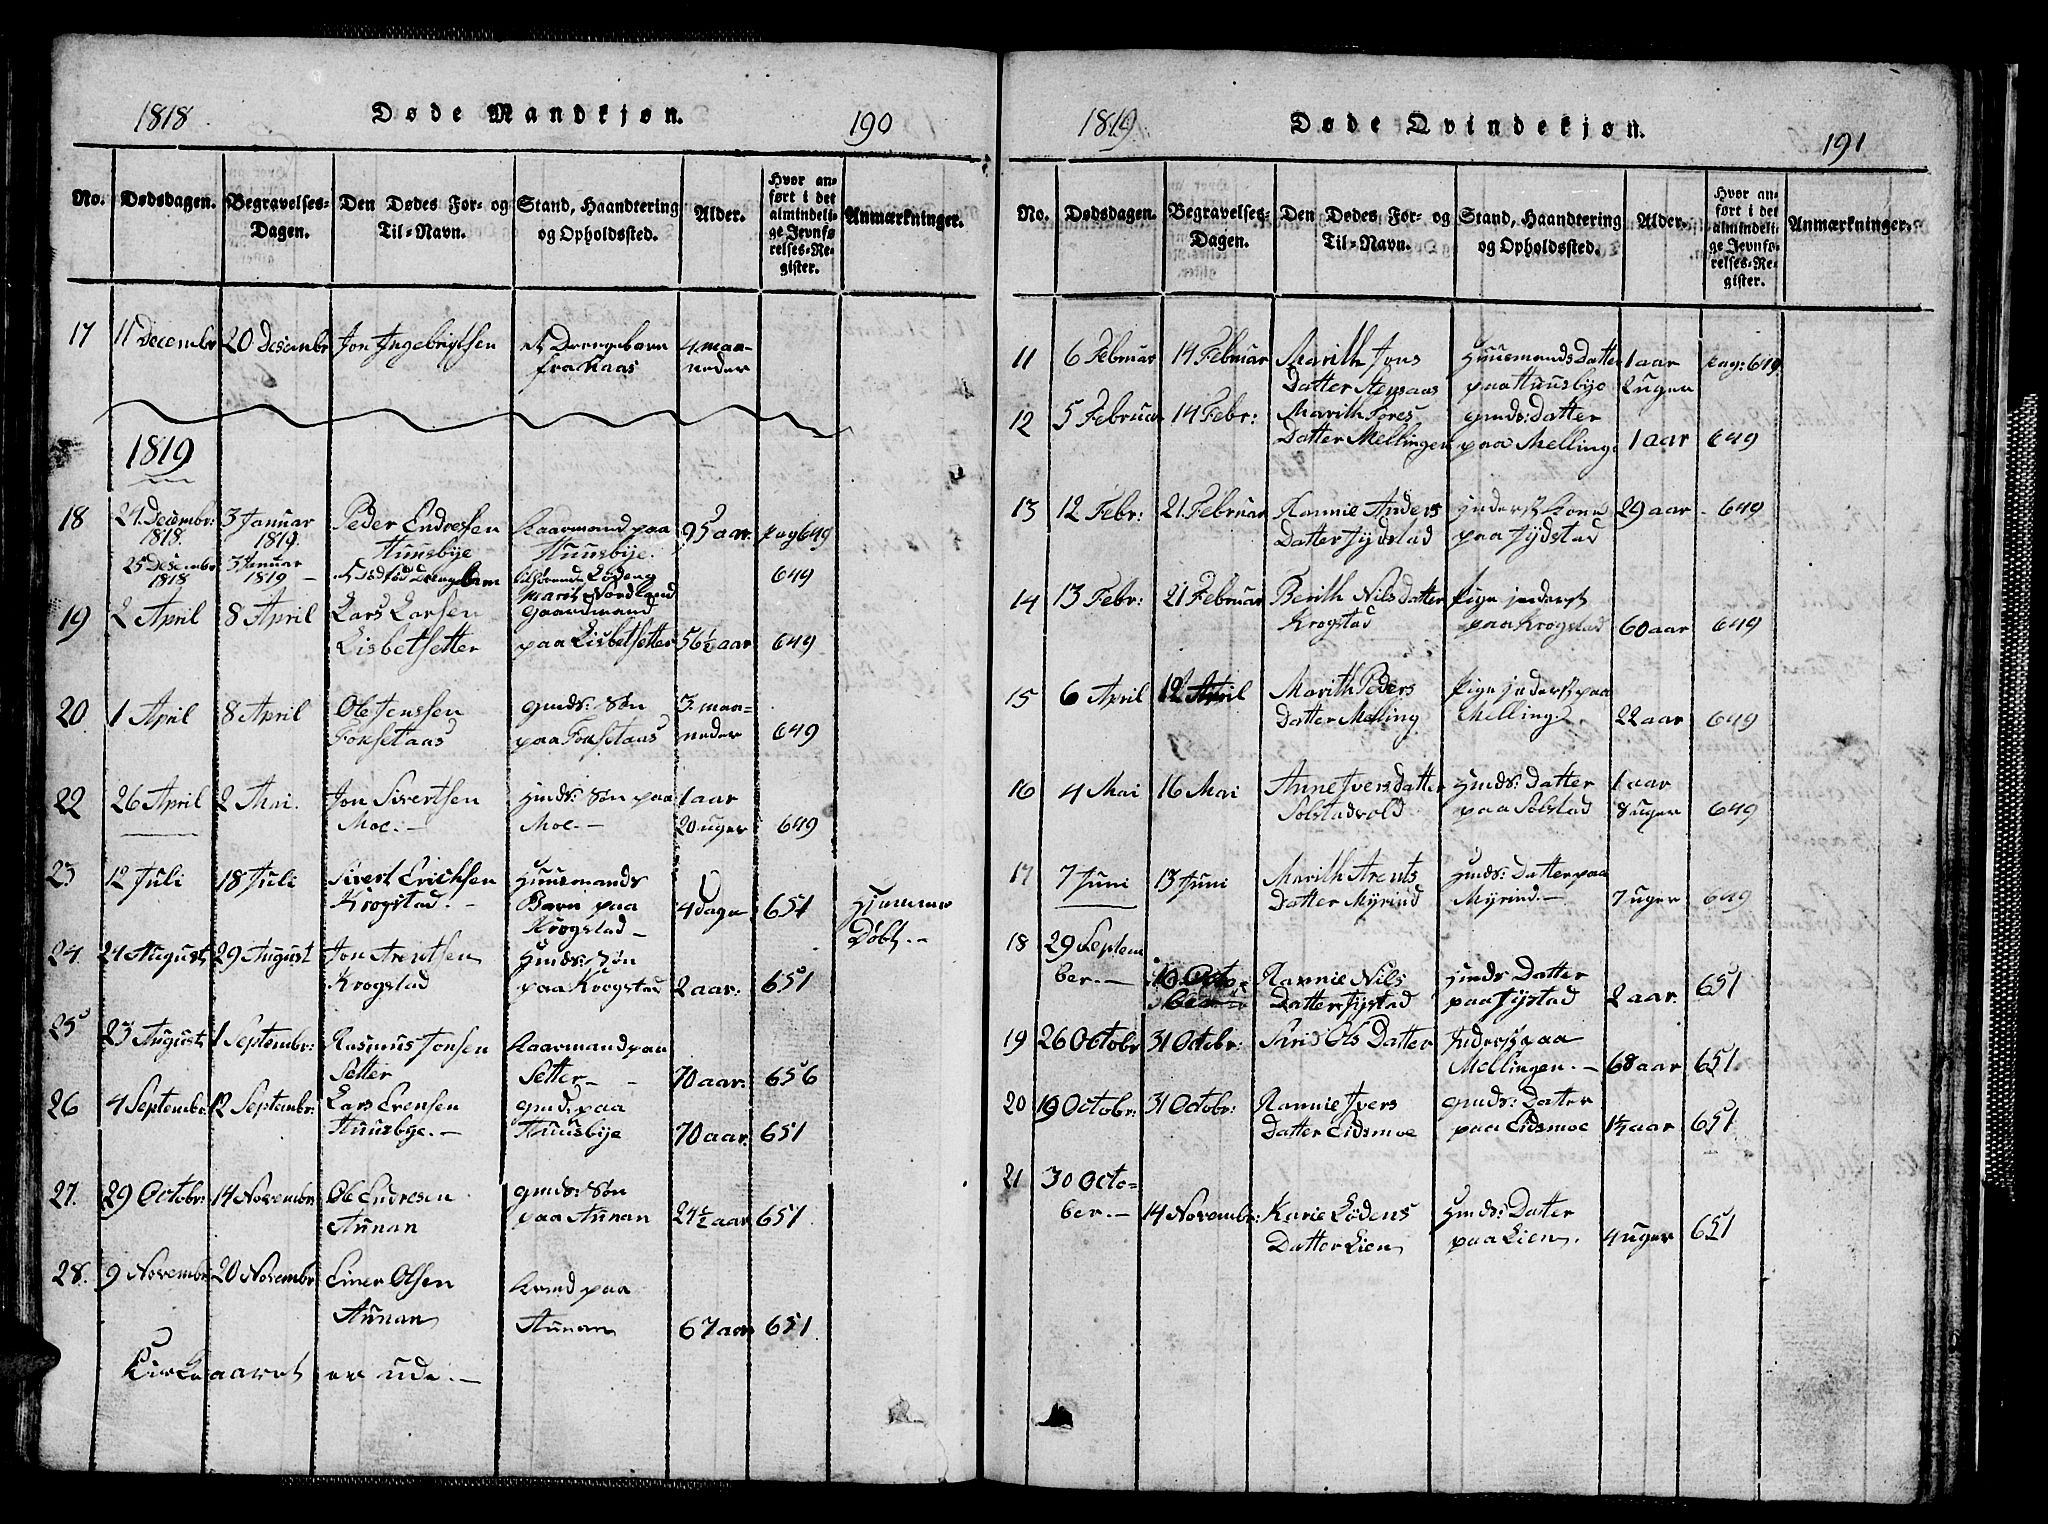 1818 Døde Mandkjøn. 190
No. Dødsdagen. Begravelses-Dagen. Den Dødes For- og Til-Navn. Stand, Haandtering og Opholdssted. Alder. Hvor anført i det almindelige Jevnførelses-Register. Anmærkninger.
17 11 December 20 Desembr Jon Ingebrigtsen et Drengebarn 4 maa-
fra Raas neder
1819
18 24 Decembr: 3 Januar Peder Endressen Kaarmand paa 95 aar. pag 649
1818. 1819. Huusbye Huusbye.
25 Desembr 3 Januar et Dødfød Drengebarn 649
1818 1819 – Marit Nordland
19 2 April 8 April Lars Larsen Gaardmand
Lisbetsetter paa Lisbetsetter 56½ aar 649
20. 1 April 8 April Ole Jenssen gmds: Søn 3 maa-
Forsetaas paa Forsetaas neder 649
22 26 April 2 Mai. Jon Sivertsen Hmds: Søn paa 1 aar
Moe. – Moe. – 20 uger 649
23 12 Juli 18 Juli Sivert Erichsen Huusmands
Krogstad. – Barn paa 4 dage 651 Hjemme
Krogstad – Døbt. –
24. 24 August 29 August Jon Arentsen Hmds: Søn
Krogstad paa Krogstad 2 aar: 651
25 23 August 1 Septembr: Rasmus Jonsen Kaarmand paa
Setter Setter – 70 aar: 656
26 4 Septembr: 12 Septembr: Lars Evensen gmd: paa
Huusbye. – Huusbye 70 aar: 651
27. 29 Octobr: 14 Novembr: Ole Endresen gmds: Søn
Aunan paa Aunan 24½ aar 651.
28. 9 Novembr 20 Novembr Einer Olsen Krmd paa
Aunan Aunan 67 aar 651.
Kirkeaaret er ude. –
1819. Døde Qvindekjøn. 191
No. Dødsdagen. Begravelses-Dagen. Den Dødes For- og Til-Navn. Stand, Haandtering og Opholdssted. Alder. Hvor anført i det almindelige Jevnførelses-Register. Anmærkninger.
11 6 Februar 14 Februar Marith Jons Huusmands Datter 1 aar pag: 649.
Datter paa Huusbye 2 uger
12 5 Februar 14 Febr: Marith Tores gmds: Datter
Datter Mellingen paa Melling. 1 aar 649
13 12 Febr: 21 Februar Rannie Anders Inderst Kone 29 aar 649
Datter Fydstad paa Fydstad
14 13 Febr: 21 Februar Berith Nils Datter Pige Inderst
Krogstad paa Krogstad 60 aar 649
15 6 April 12 April Marith Peders Pige Inderst paa
Datter Melling Melling 22 aar 649
16 4 Mai 16 Mai Anne Ivers Datter Hmds: Datter 1 aar
Solstadvold paa Solstad 8 uger 649
17 7 Juni 13 Juni Marith Arents Hmds: Datter paa
Datter Myrind Myrind. – 7 uger 649
18 29 Septem
ber. – 10 Octo- Rannie Nils Hmds Datter
ber – Datter Fystad paa Fystad 2 aar. 651
19 26 Octobr 31 Octobr: Siri Ols Datter Inderst paa
Mellingen. – 68 aar 651
20 19 Octobr: 31 Octobr: Rannie Ivers gmds: Datter
Datter Eidsmoe paa Eidsmoe 1½ aar 651
21 30 Octo-
ber. – 14 Novembr: Karie Lødens Hmds: Datter
Datter Lien paa Lien. 4 uger 651